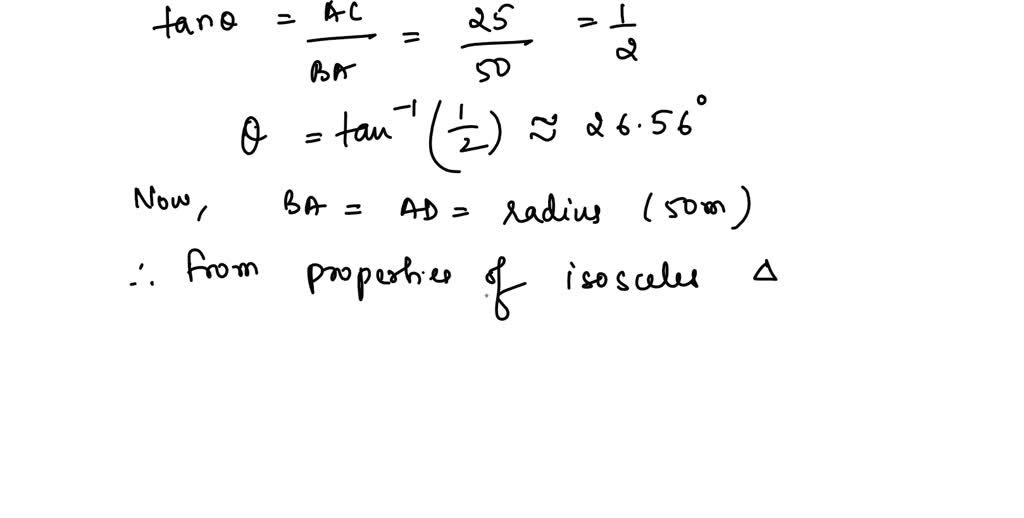 tanθ = AC/BA = 25/50 = 1/2
θ = tan⁻¹(1/2) ≈ 26.56°
Now, BA = AD = radius (50m)
∴ from properties of isosceles Δ